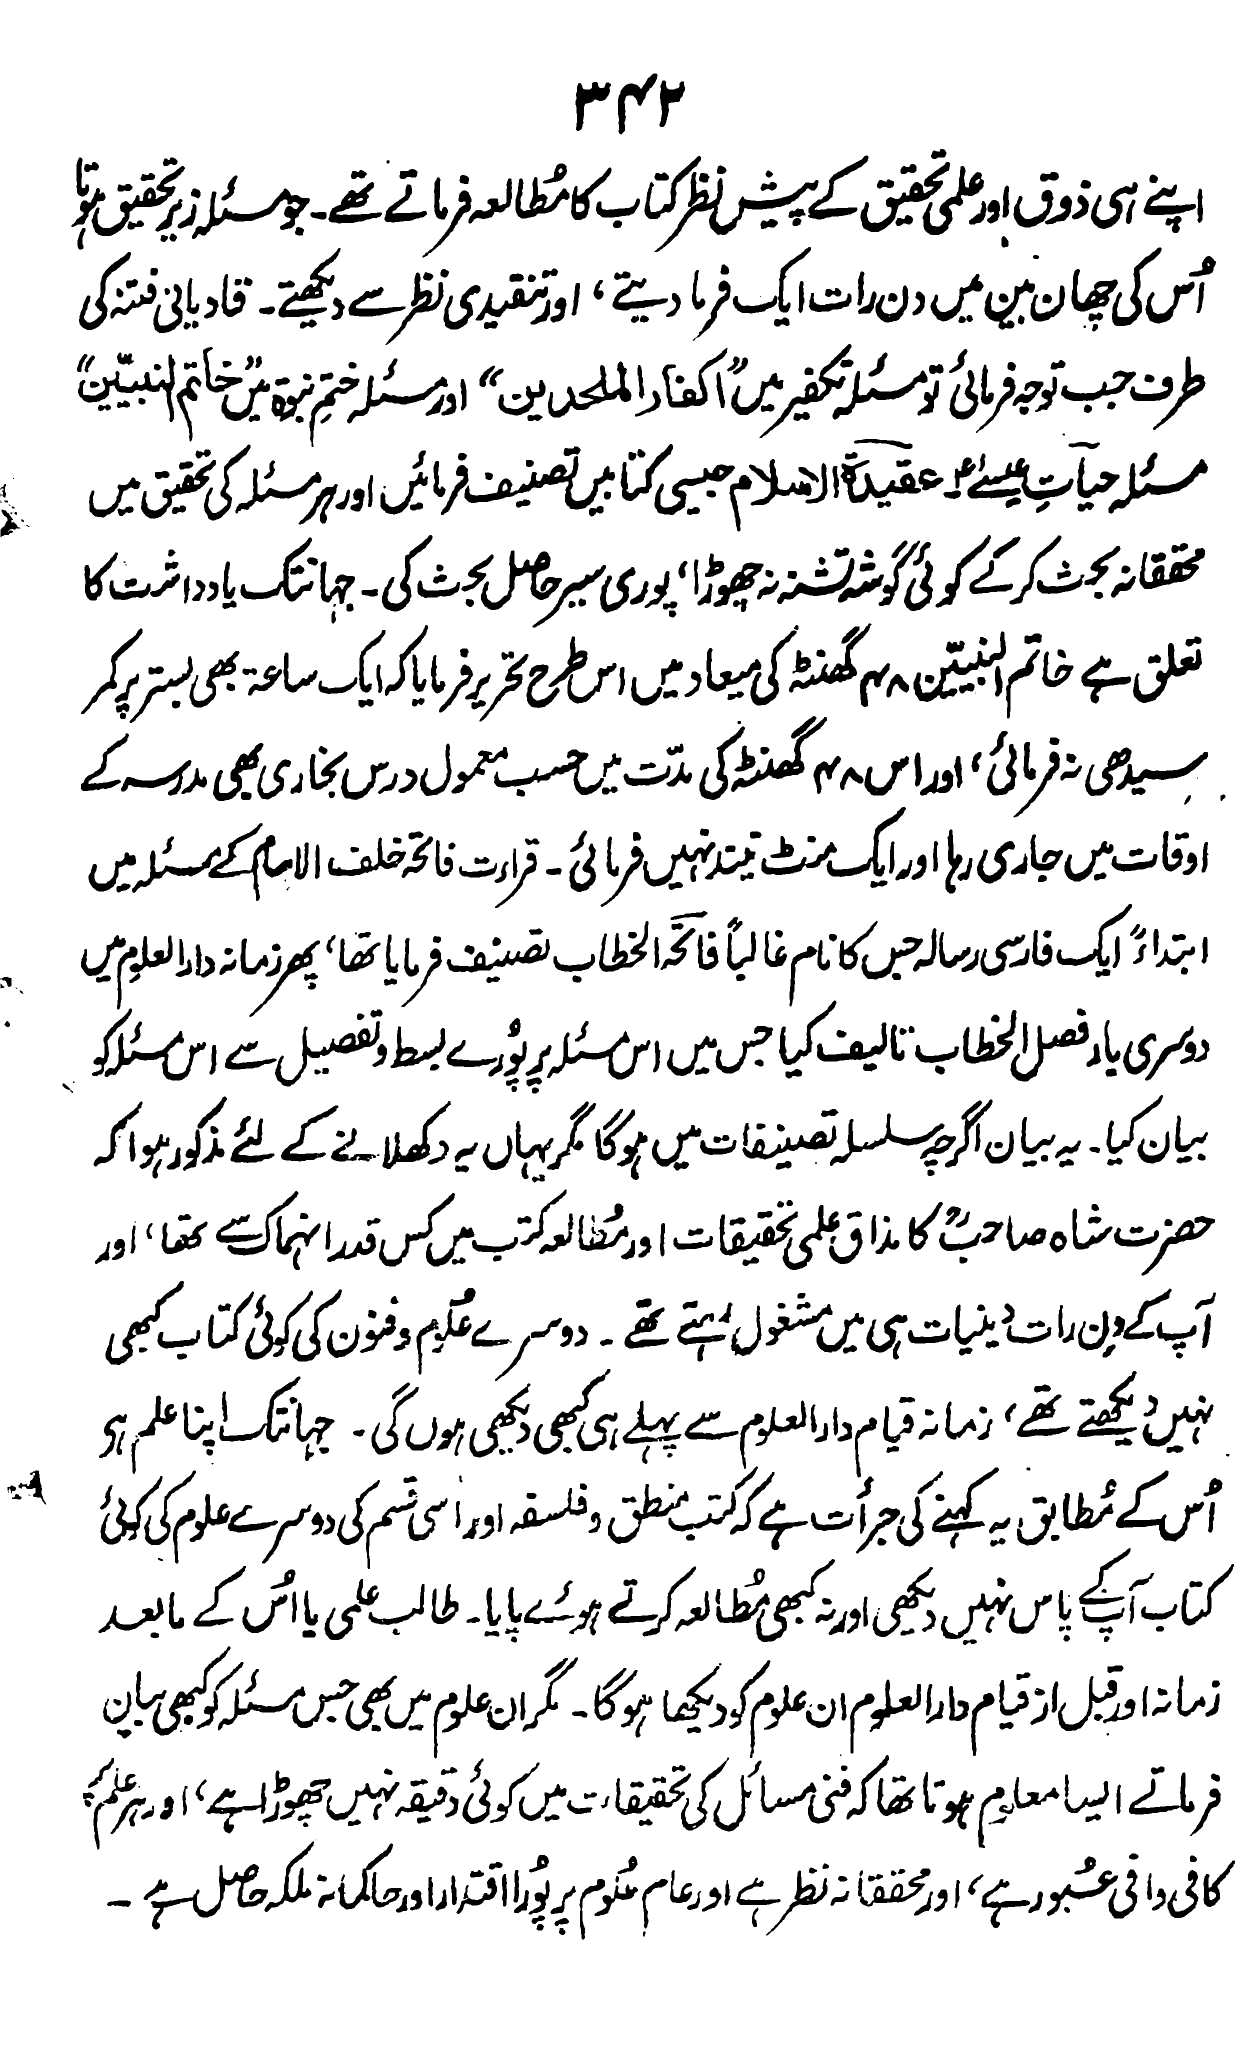 ۳۴۲
اپنے ہی ذوق اور علمی تحقیق کے پیش نظر کتاب کا مُطالعہ فرماتے تھے۔ جو مسئلہ زیر تحقیق ہوتا
اُس کی چھان بین میں دن رات ایک فرما دیتے، اور تنقیدی نظر سے دیکھتے۔ قادیانی فتنہ کی
طرف جب توجہ فرمائی تو مسئلہ تکفیر میں "اکفار الملحدین" اور مسئلہ ختمِ نبوۃ میں "خاتم النبیّین"
مسئلہ حیاتِ عیسےٰؑ عقیدۃ الاسلام جیسی کتابیں تصنیف فرمائیں اور ہر مسئلہ کی تحقیق میں
محققانہ بحث کر کے کوئی گوشہ تشنہ نہ چھوڑا، پوری سیر حاصل بحث کی۔ جہانتک یادداشت کا
تعلق ہے خاتم النبیّین ۴۸ گھنٹہ کی میعاد میں اس طرح تحریر فرمایا کہ ایک ساعۃ بھی بستر پر کمر
سیدھی نہ فرمائی، اور اس ۴۸ گھنٹہ کی مدّت میں حسب معمول درس بخاری بھی مدرسہ کے
اوقات میں جاری رہا اور ایک منٹ نیند نہیں فرمائی۔ قراءت فاتحۃ خلف الامام کے مسئلہ میں
ابتداءً ایک فارسی رسالہ جس کا نام غالباً فاتحۃ الخطاب تصنیف فرمایا تھا، پھر زمانہ دارالعلوم میں
دوسری بار فصل الخطاب تالیف کیا جس میں اس مسئلہ پر پُورے بسط و تفصیل سے اس مسئلہ کو
بیان کیا۔ یہ بیان اگرچہ سلسلہ تصنیفات میں ہوگا مگر یہاں یہ دکھلانے کے لئے مذکور ہوا کہ
حضرت شاہ صاحبؒ کا مذاق علمی تحقیقات اور مُطالعہ کتب میں کس قدر انہماک سے تھا، اور
آپ کے دن رات دینیات ہی میں مشغول رہتے تھے۔ دوسرے عُلوم و فنون کی کوئی کتاب کبھی
نہیں دیکھتے تھے، زمانہ قیام دارالعلوم سے پہلے ہی کبھی دیکھی ہوں گی۔ جہانتک اپنا علم ہو
اُس کے مُطابق یہ کہنے کی جرأت ہے کہ کتب منطق و فلسفہ اور اسی قسم کی دوسرے علوم کی کوئی
کتاب آپ کے پاس نہیں دیکھی اور نہ کبھی مُطالعہ کرتے ہوئے پایا۔ طالب علمی یا اُس کے مابعد
زمانہ اور قبل از قیام دارالعلوم ان علوم کو دیکھا ہوگا۔ مگر ان علوم میں بھی جس مسئلہ کو کبھی بیان
فرماتے ایسا معلوم ہوتا تھا کہ فنی مسائل کی تحقیقات میں کوئی دقیقہ نہیں چھوڑا ہے، اور ہر علم پر
کافی وافی عُبور ہے، اور محققانہ نظر ہے اور عام عُلوم پر پُورا اقتدار اور حاکمانہ ملکہ حاصل ہے۔